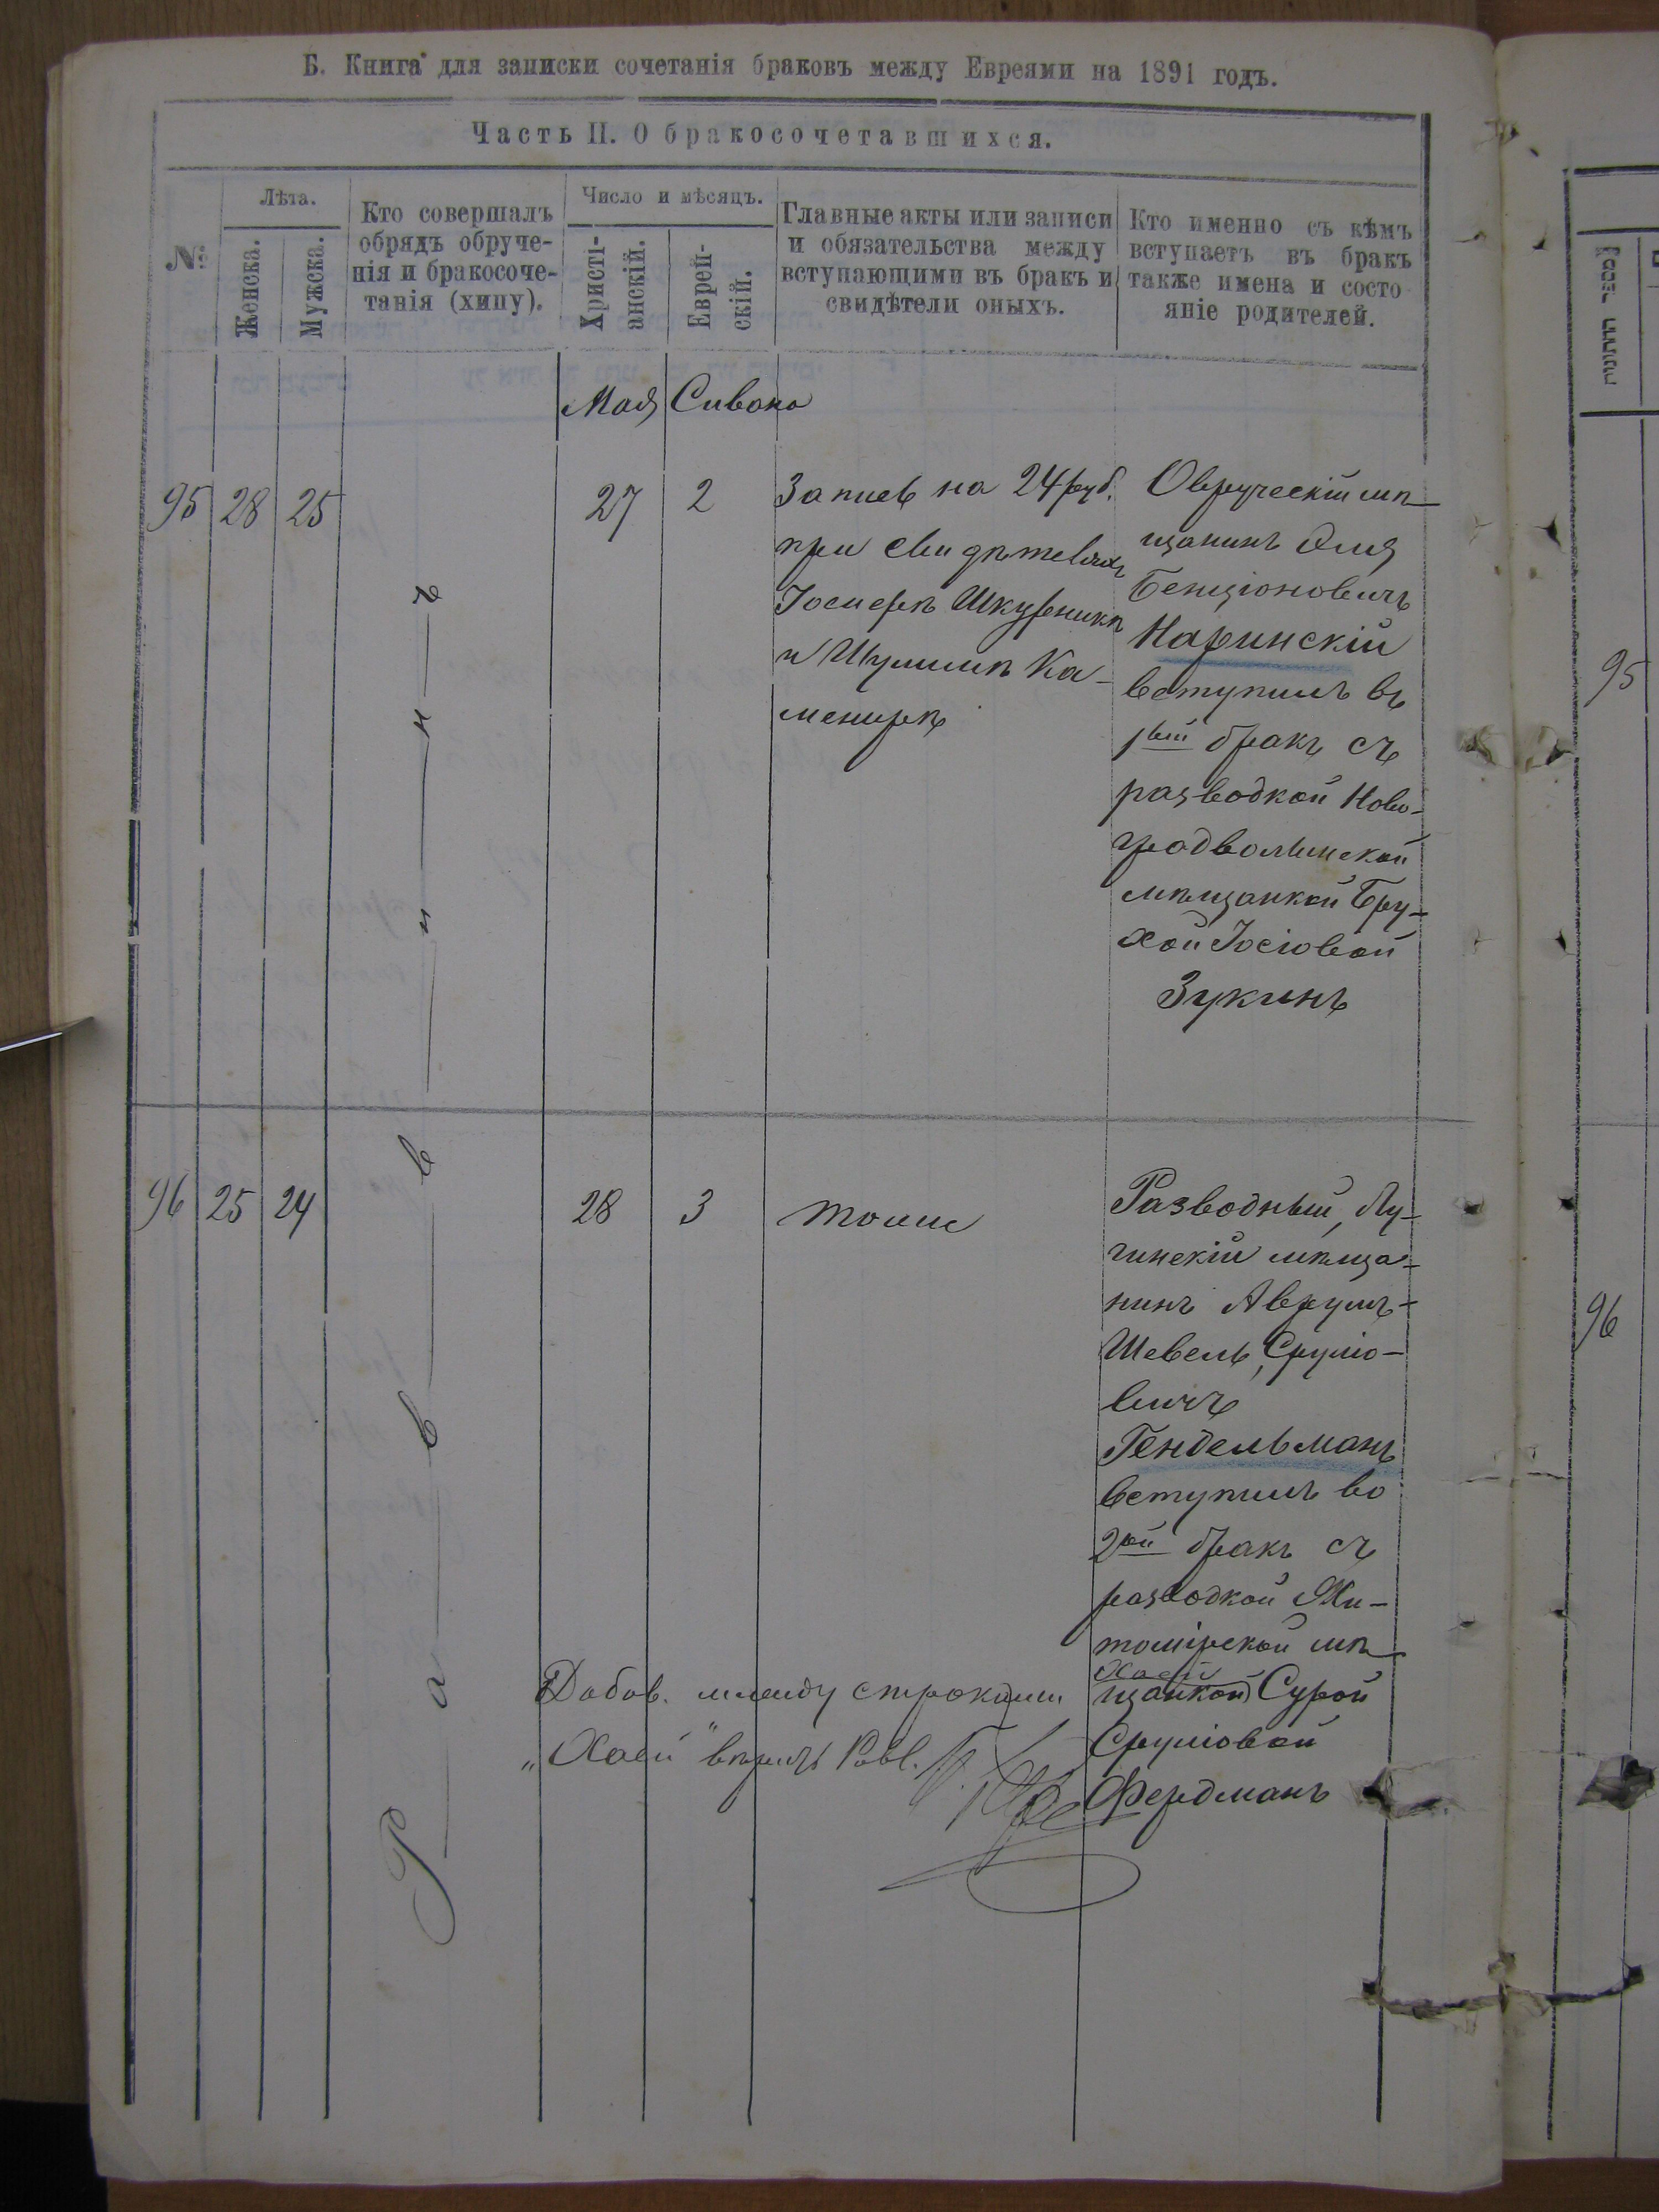 Б. Книга для записки сочетанія браковъ между Евреями на 1891 годъ.
Часть II. О бракосочетавшихся.
№
Лѣта.
Женска.
Мужска.
Кто совершалъ
обрядъ обруче-
нія и бракосоче-
танія (хипу).
Число и мѣсяцъ.
Христі-
анскій.
Еврей-
скій.
Главные акты или записи
и обязательства между
вступающими въ бракъ и
свидѣтели оныхъ.
Кто именно съ кѣмъ
вступаетъ въ бракъ
также имена и состо
яніе родителей.
Мая Сивона
95 28 25
27 2
Запись на 24 руб.
при свидѣтеляхъ
Іосифѣ Шкурникѣ
и Шулимѣ Ка-
менирѣ
Овручскій мѣ-
щанинъ Эля
Бенціоновичъ
Наринскій
вступилъ въ
1вый бракъ съ
разводкой Ново-
градволынской
мѣщанкой Бру-
хой Іосіовой
Зукинъ
Раввинъ
96 25 24
28 3
тоже
Разводный, Лу-
гинскій мѣща-
нинъ Аврумъ-
Шевель Сруліо-
вичъ
Гендельманъ
вступилъ во
2ой бракъ съ
разводкой Жи-
томірской мѣ-
Хаей
щанкой Сурой
Cруліовой
Фердманъ
Добав. между строками
„Хаей" вѣрить Равв.
95
96